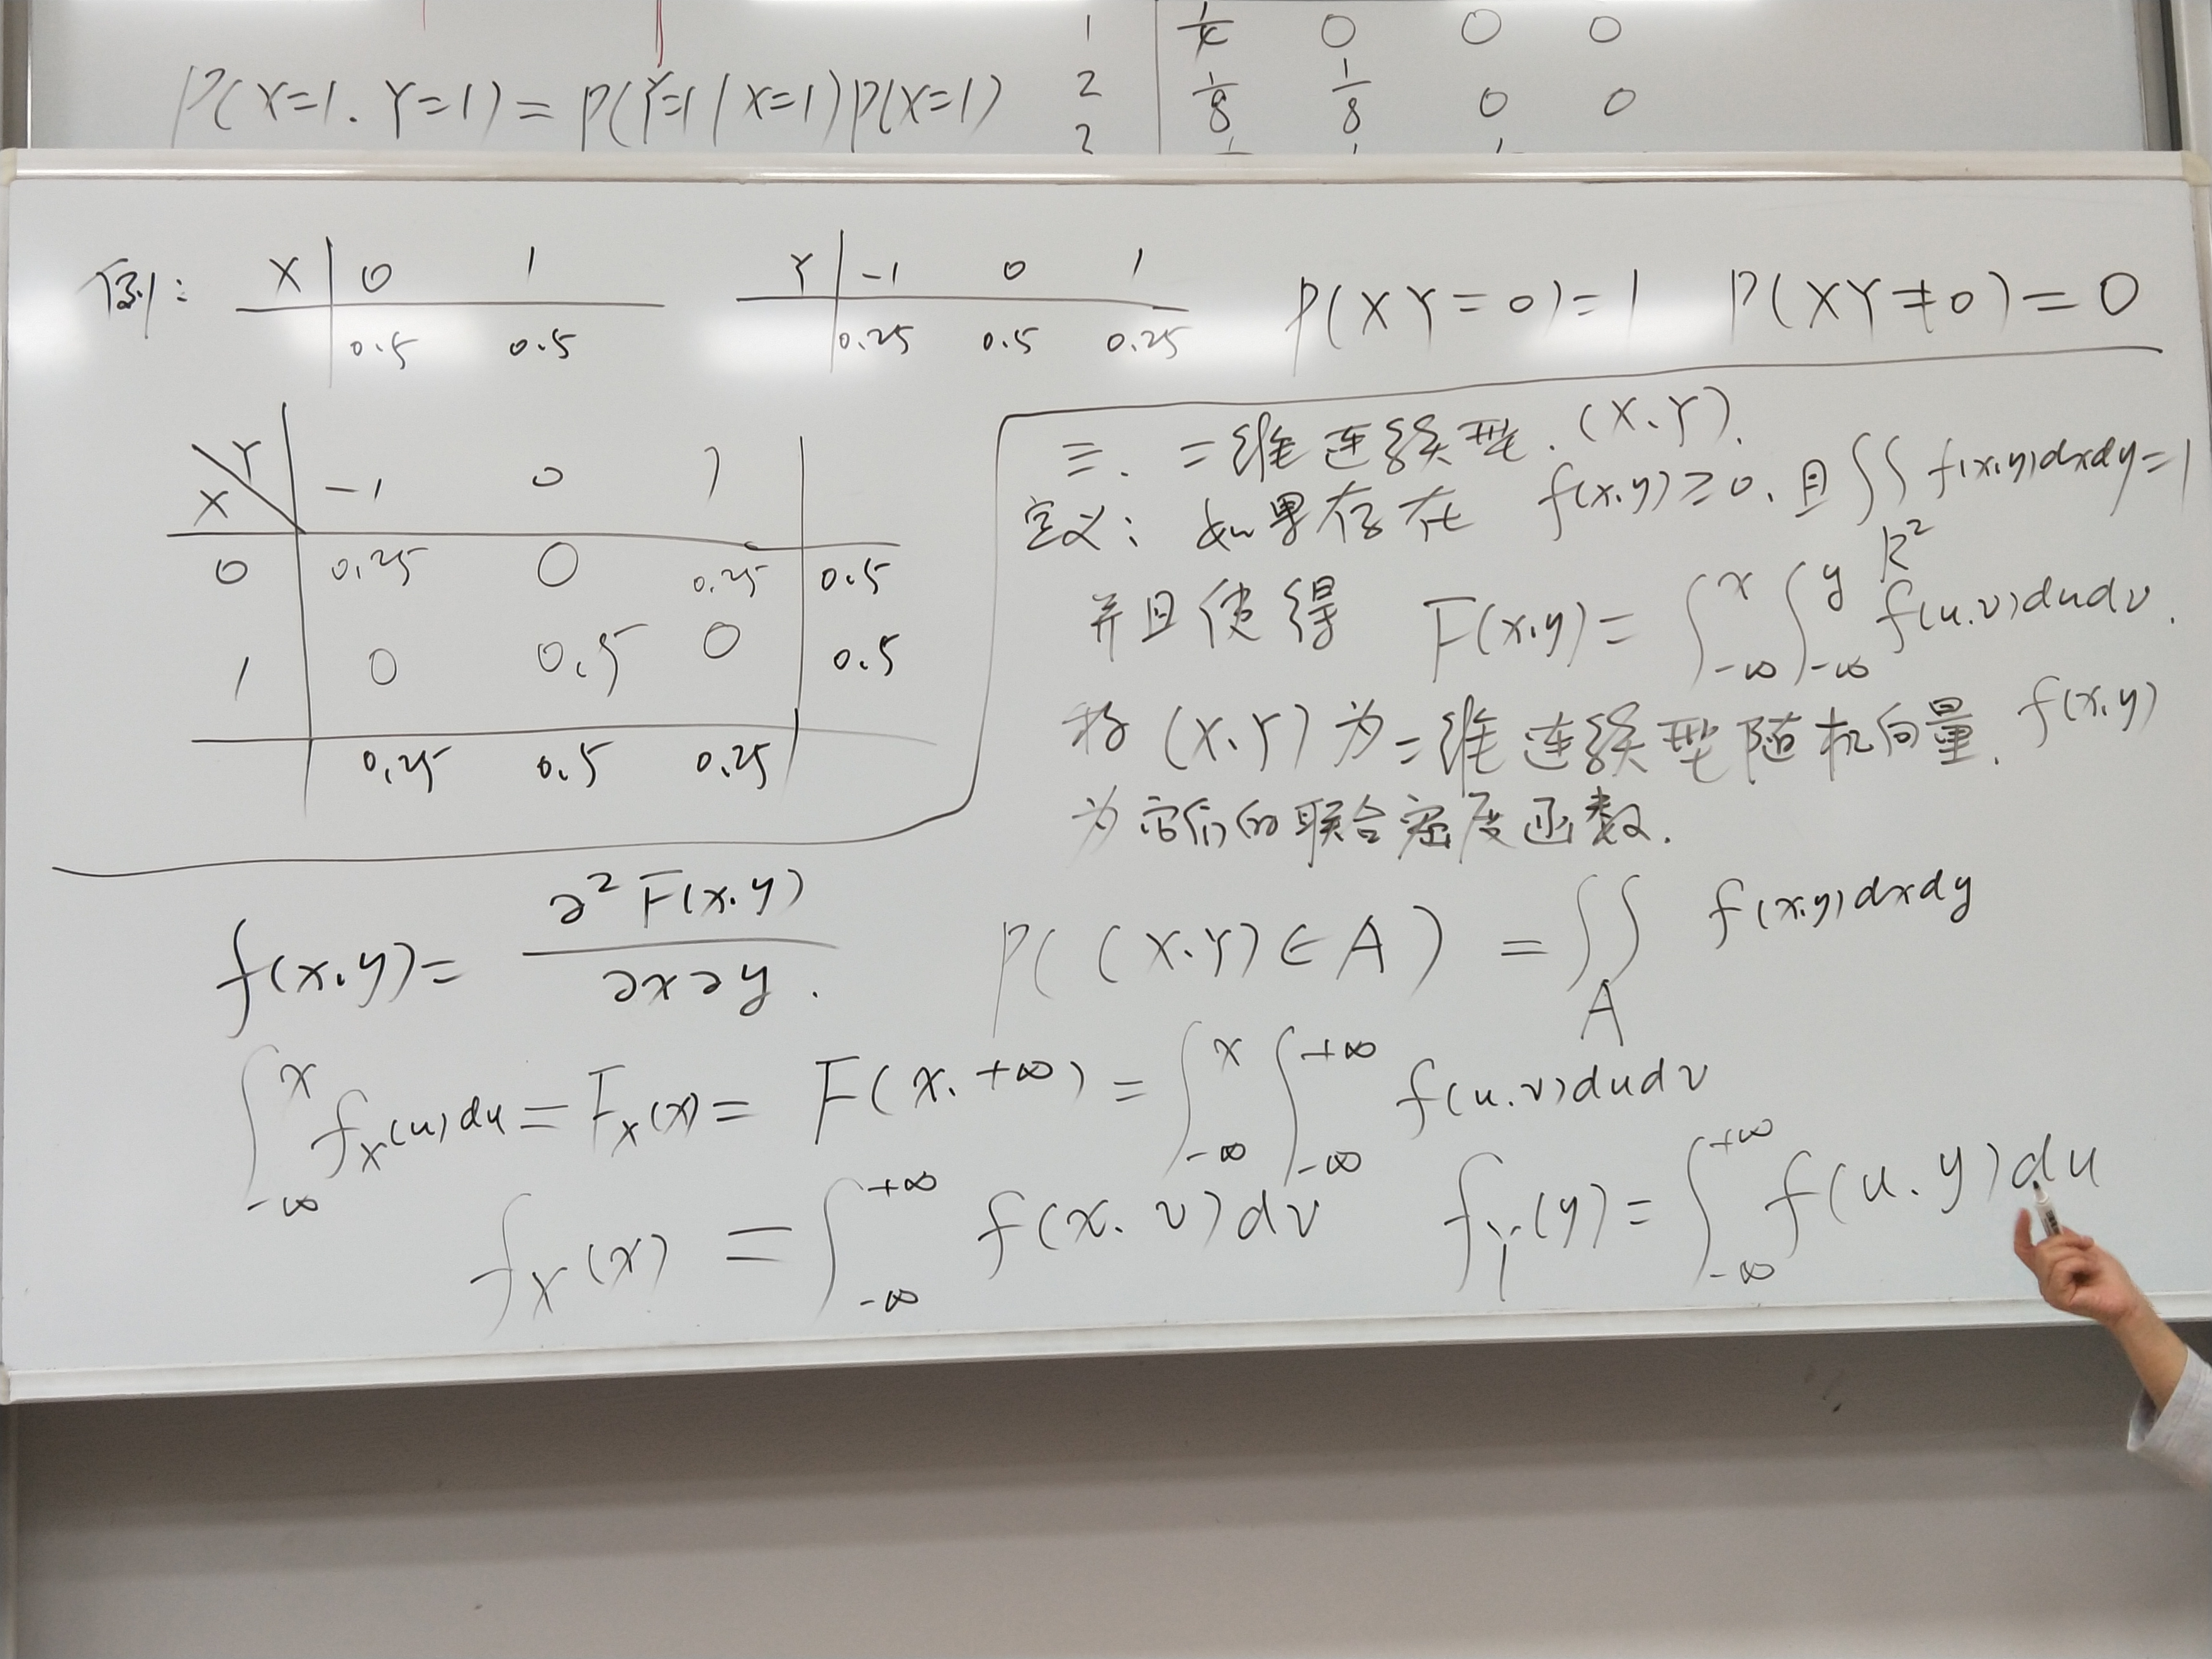 P(X=1. Y=1) = P(Y=1 | X=1) P(X=1)
1 0 0 0
2 1/8 1/8 0 0
例: X 0 1
0.5 0.5
Y -1 0 1
0.25 0.5 0.25
P(XY=0)=1 P(XY≠0)=0
Y
X -1 0 1
0 0.25 0 0.25 0.5
1 0 0.5 0 0.5
0.25 0.5 0.25
三. 二维连续型. (X.Y).
定义: 如果存在 f(x.y)≥0. 且 ∬_{R²} f(x.y)dxdy=1
并且使得 F(x.y)= ∫_{-∞}^{x} ∫_{-∞}^{y} f(u.v)dudv.
称 (X.Y) 为二维连续型随机向量. f(x.y)
为它们的联合密度函数.
f(x.y)= ∂²F(x.y) / ∂x∂y .
P((X.Y)∈A) = ∬_A f(x.y)dxdy
∫_{-∞}^{x} f_X(u)du = F_X(x) = F(x.+∞) = ∫_{-∞}^{x} ∫_{-∞}^{+∞} f(u.v)dudv
f_X(x) = ∫_{-∞}^{+∞} f(x.v)dv
f_Y(y) = ∫_{-∞}^{+∞} f(u.y)du